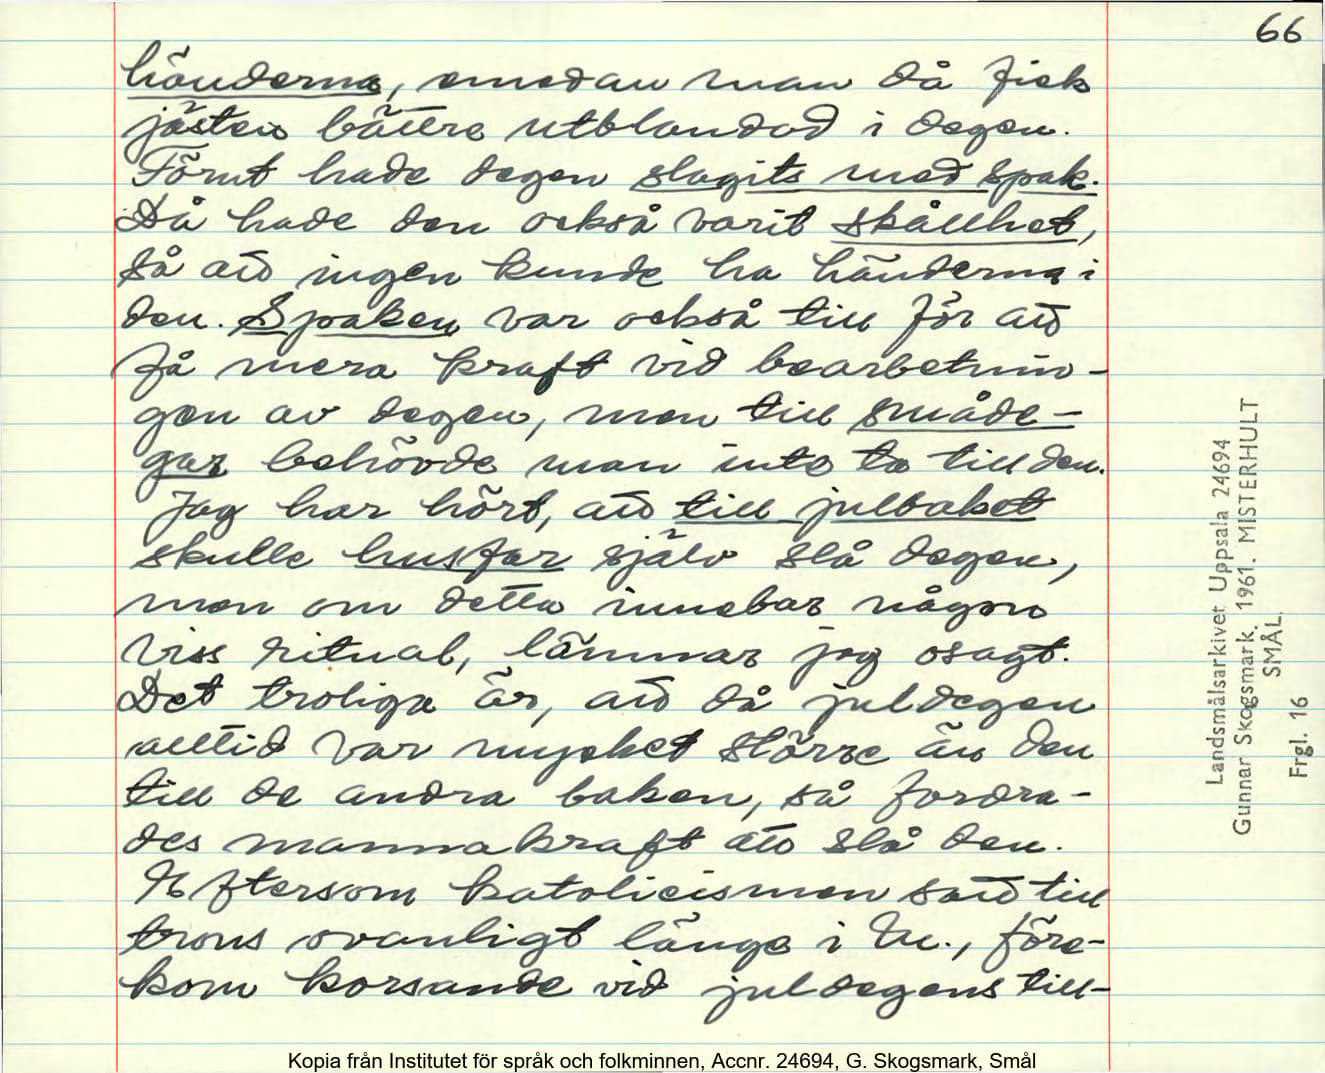 66
händerna, emedan man då fick
jästen bättre utblandad i degen.
Förut hade degen slagits med spak.
Då hade den också varit skållhet,
så att ingen kunde ha händerna i
den. Spaken var också till för att
få mera kraft vid bearbetnin-
gen av degen, men till småde-
gar behövde man inte ta till den.
Jag har hört, att till julbaket
skulle husfar själv slå degen,
men om detta innebar någon
viss ritual, lämnar jag osagt.
Det troliga är, att då juldegen
alltid var mycket större än den
till de andra baken, så fordra-
des mannakraft att slå den.
Eftersom katolicismen satt till
trons ovanligt länge i M., före-
kom korsande vid juldegens till-
Landsmålsarkivet Uppsala 24694
Gunnar Skogsmark. 1961. MISTERHULT
SMÅL.
Frgl. 16
Kopia från Institutet för språk och folkminnen, Accnr. 24694, G. Skogsmark, Smål